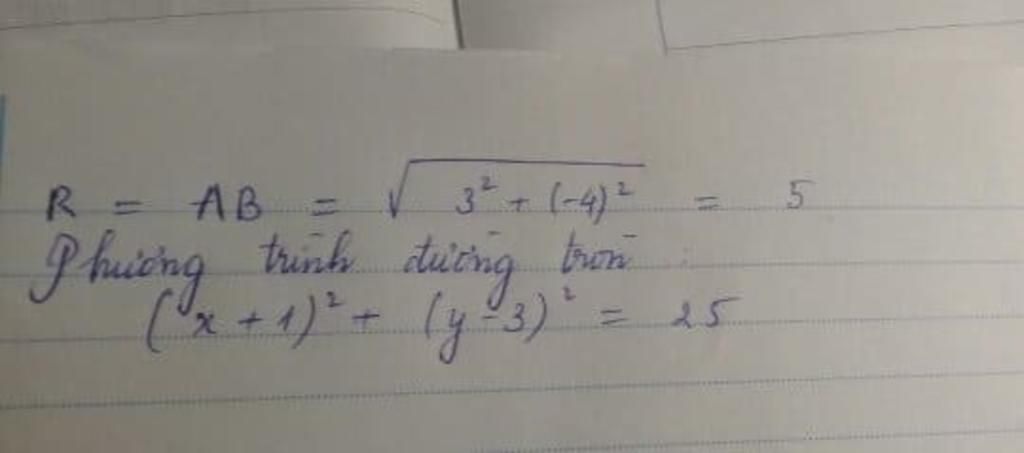 R = AB = √(3² + (-4)²) = 5
Phương trình đường tròn :
(x + 1)² + (y - 3)² = 25